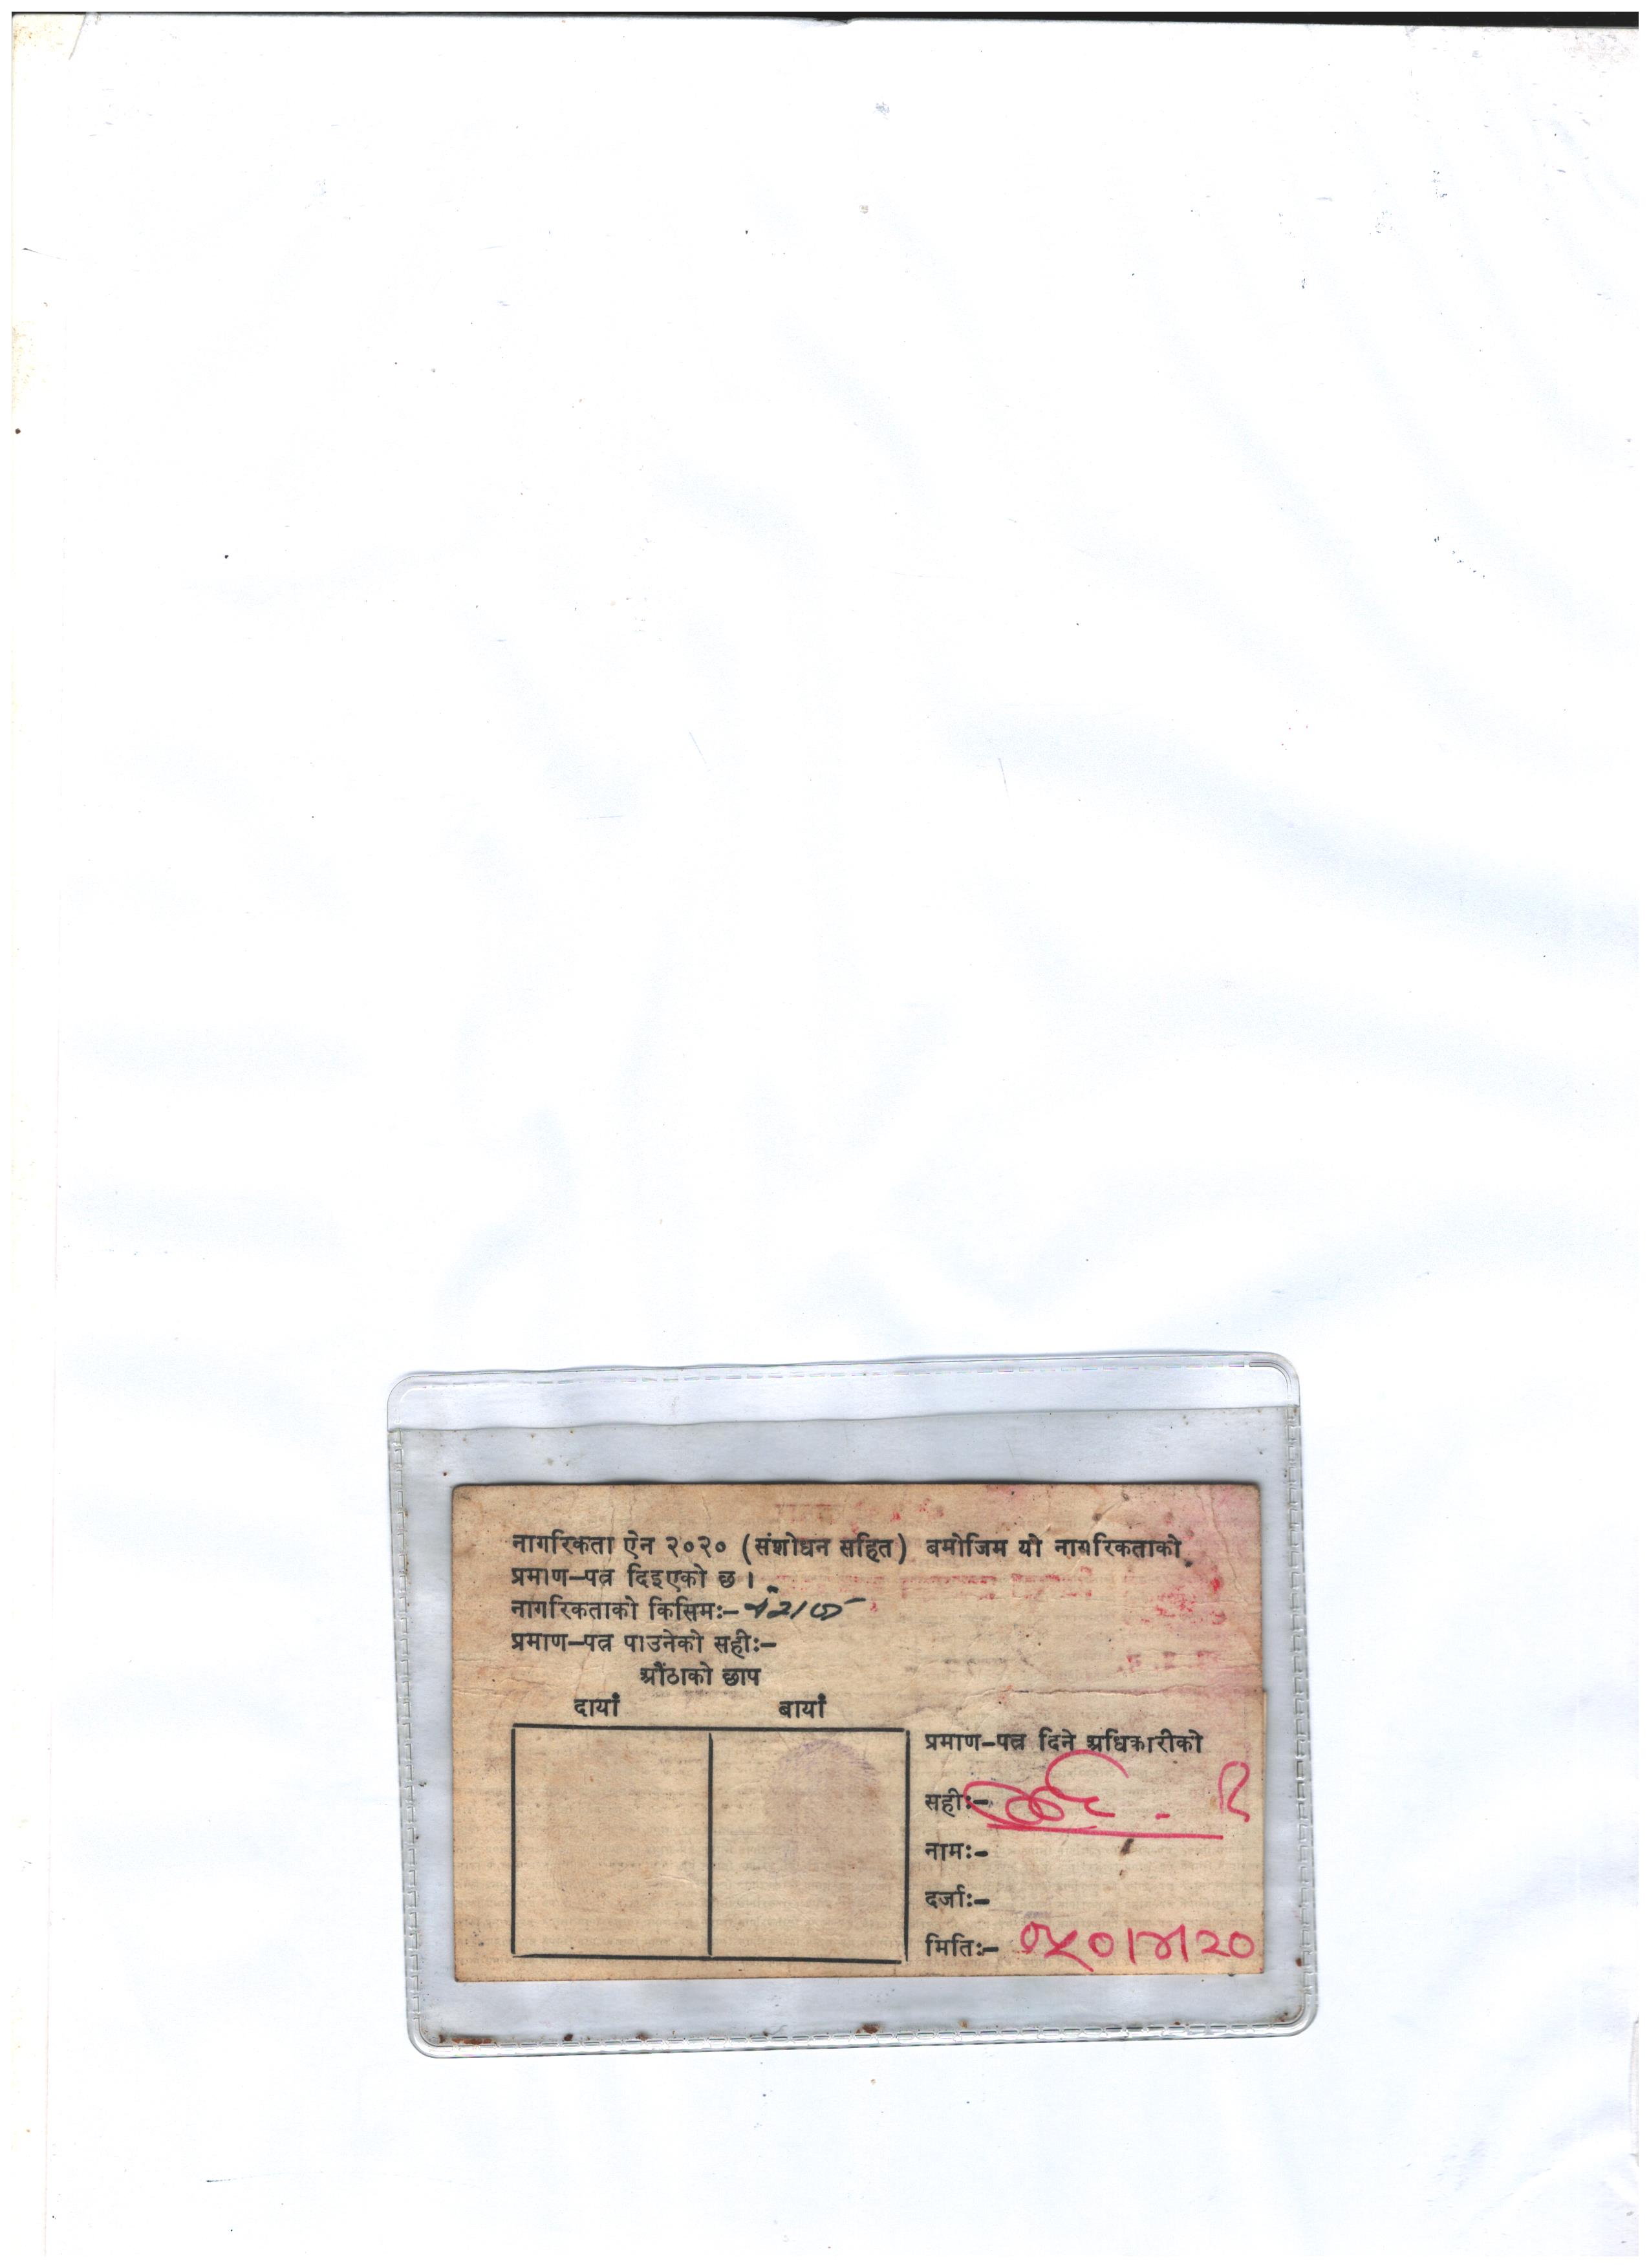 नागरिकता ऐन २०२० (संशोधन सहित) बमोजिम यो नागरिकताको
प्रमाण-पत्र दिइएको छ ।
नागरिकताको किसिमः- वंशज
प्रमाण-पत्र पाउनेको सहीः-
औंठाको छाप
दायाँ बायाँ
प्रमाण-पत्र दिने अधिकारीको
सहीः-
नामः-
दर्जाः-
मितिः-